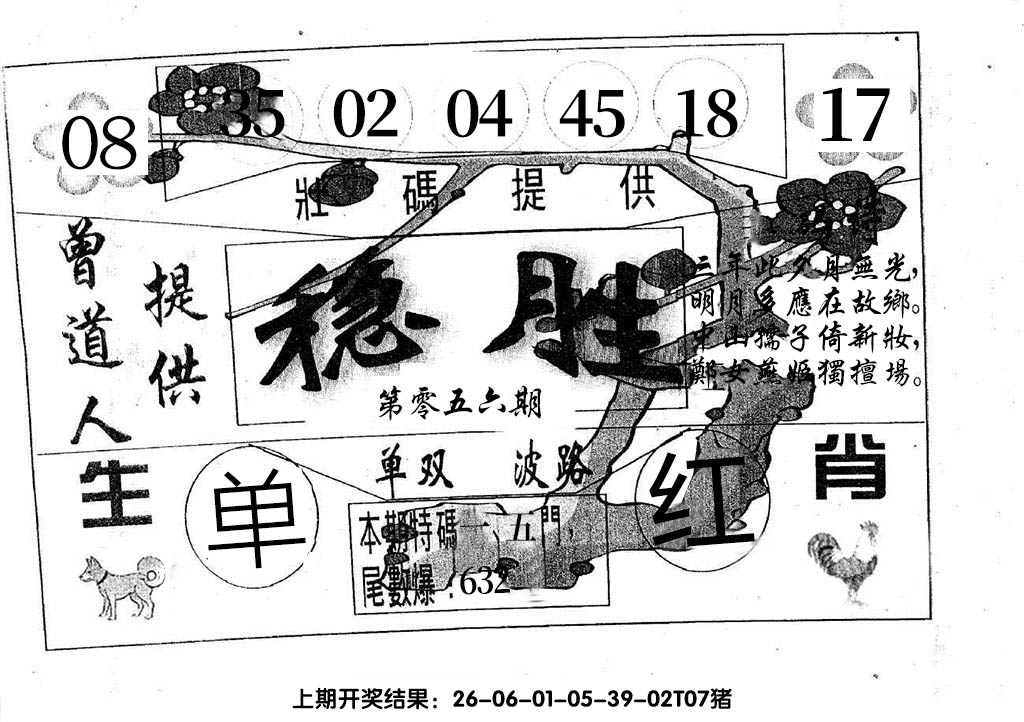 08 35 02 04 45 18 17
壯碼提供
曾道人
提供
稳胜
第零五六期
三年此夕月無光，
明月多應在故鄉。
東山孺子倚新妝，
鄭女燕姬獨擅場。
单双 波路
生肖
单
红
本期特碼一、五門，
尾數爆：632
上期开奖结果：26-06-01-05-39-02T07猪